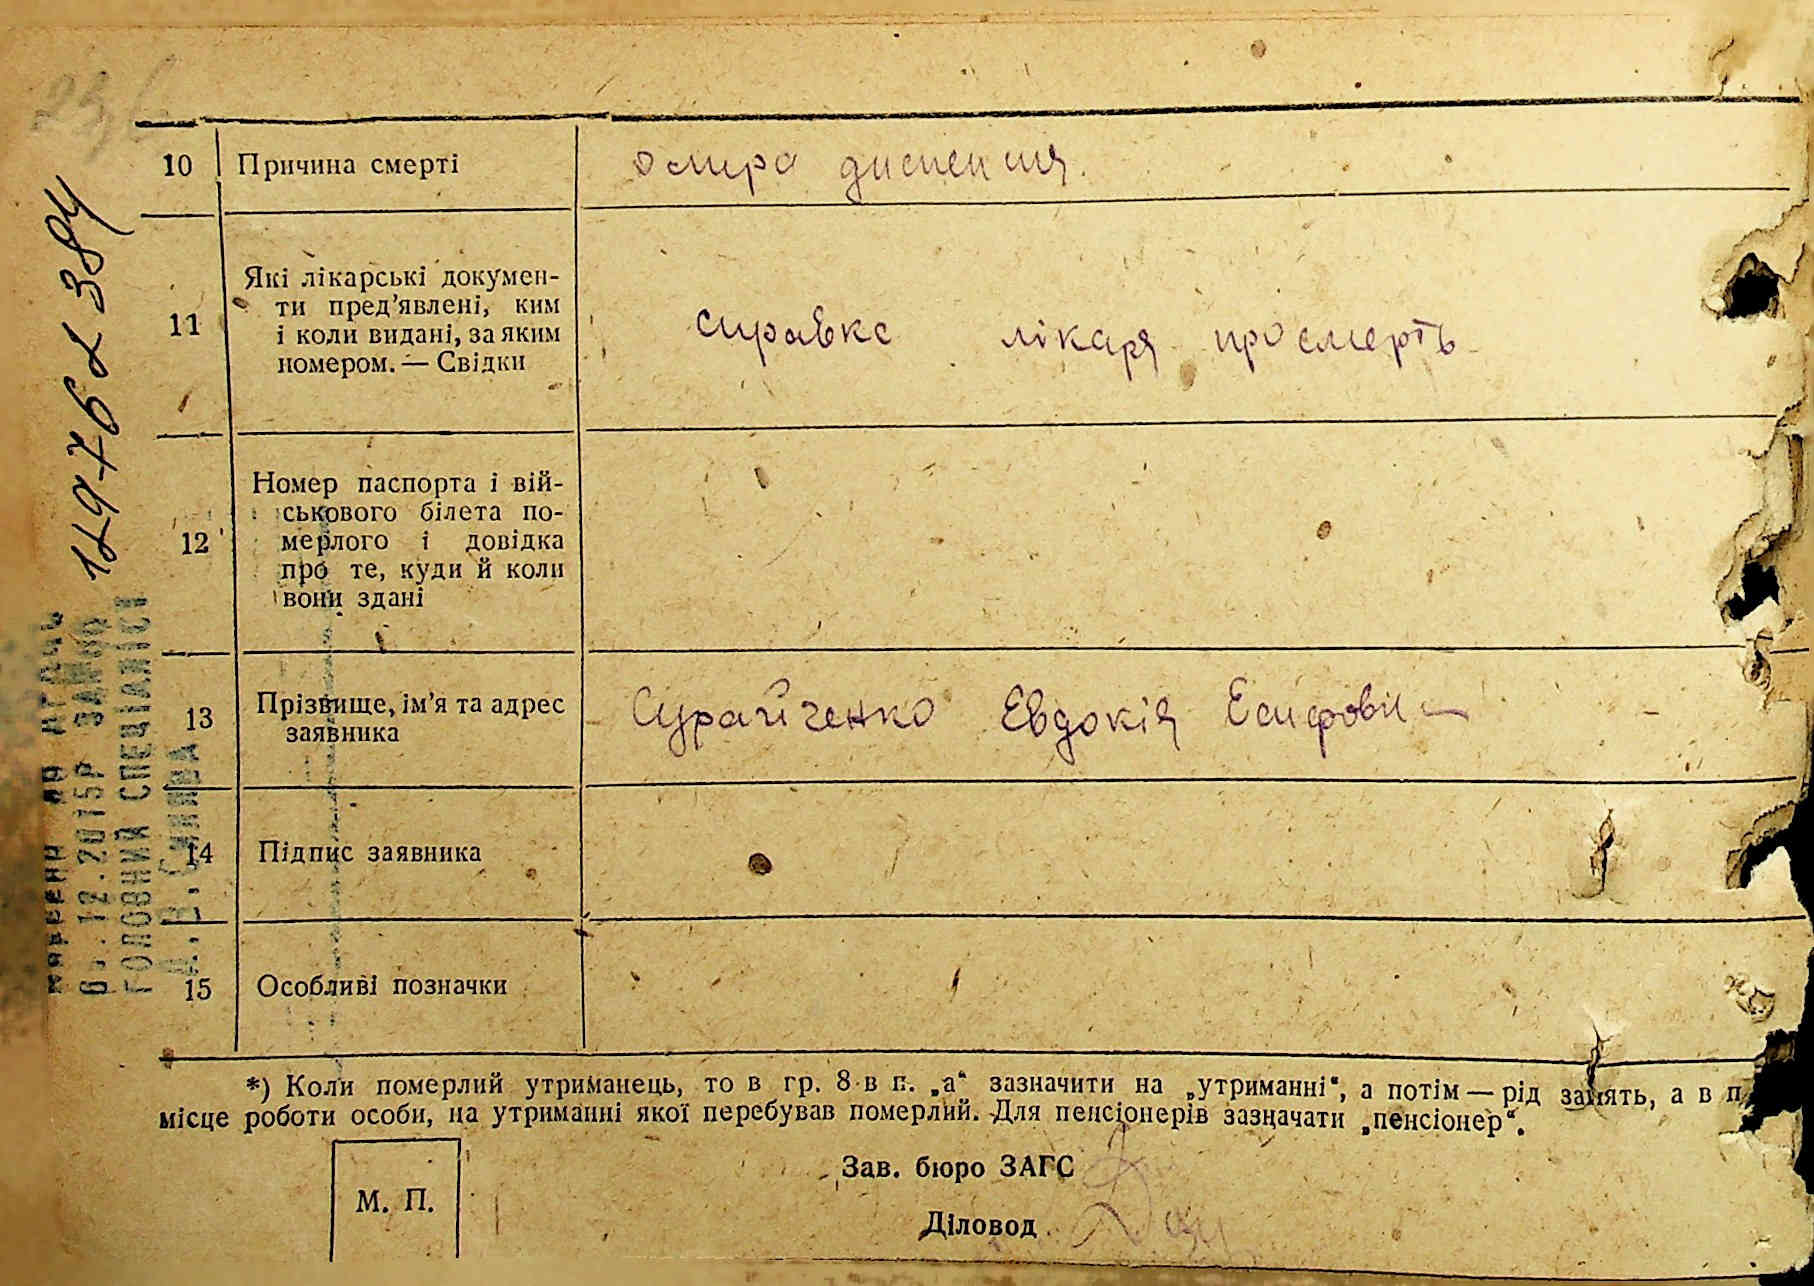 10 Причина смерті остра диспепсия.
11 Які лікарські докумен-
ти пред’явлені, ким
і коли видані, за яким
номером. — Свідки
справка лікаря про смерть
12 Номер паспорта і вій-
ськового білета по-
мерлого і довідка
про те, куди й коли
вони здані
13 Прізвище, ім’я та адрес
заявника
Сурайченко Евдокія Есифовн
14 Підпис заявника
15 Особливі позначки
*) Коли померлий утриманець, то в гр. 8 в п. „а“ зазначити на „утриманні“, а потім — рід занять, а в п.
місце роботи особи, на утриманні якої перебував померлий. Для пенсіонерів зазначати „пенсіонер“.
Зав. бюро ЗАГС
М. П.
Діловод
12.2015р
ГОЛОВНИЙ СПЕЦІАЛІСТ